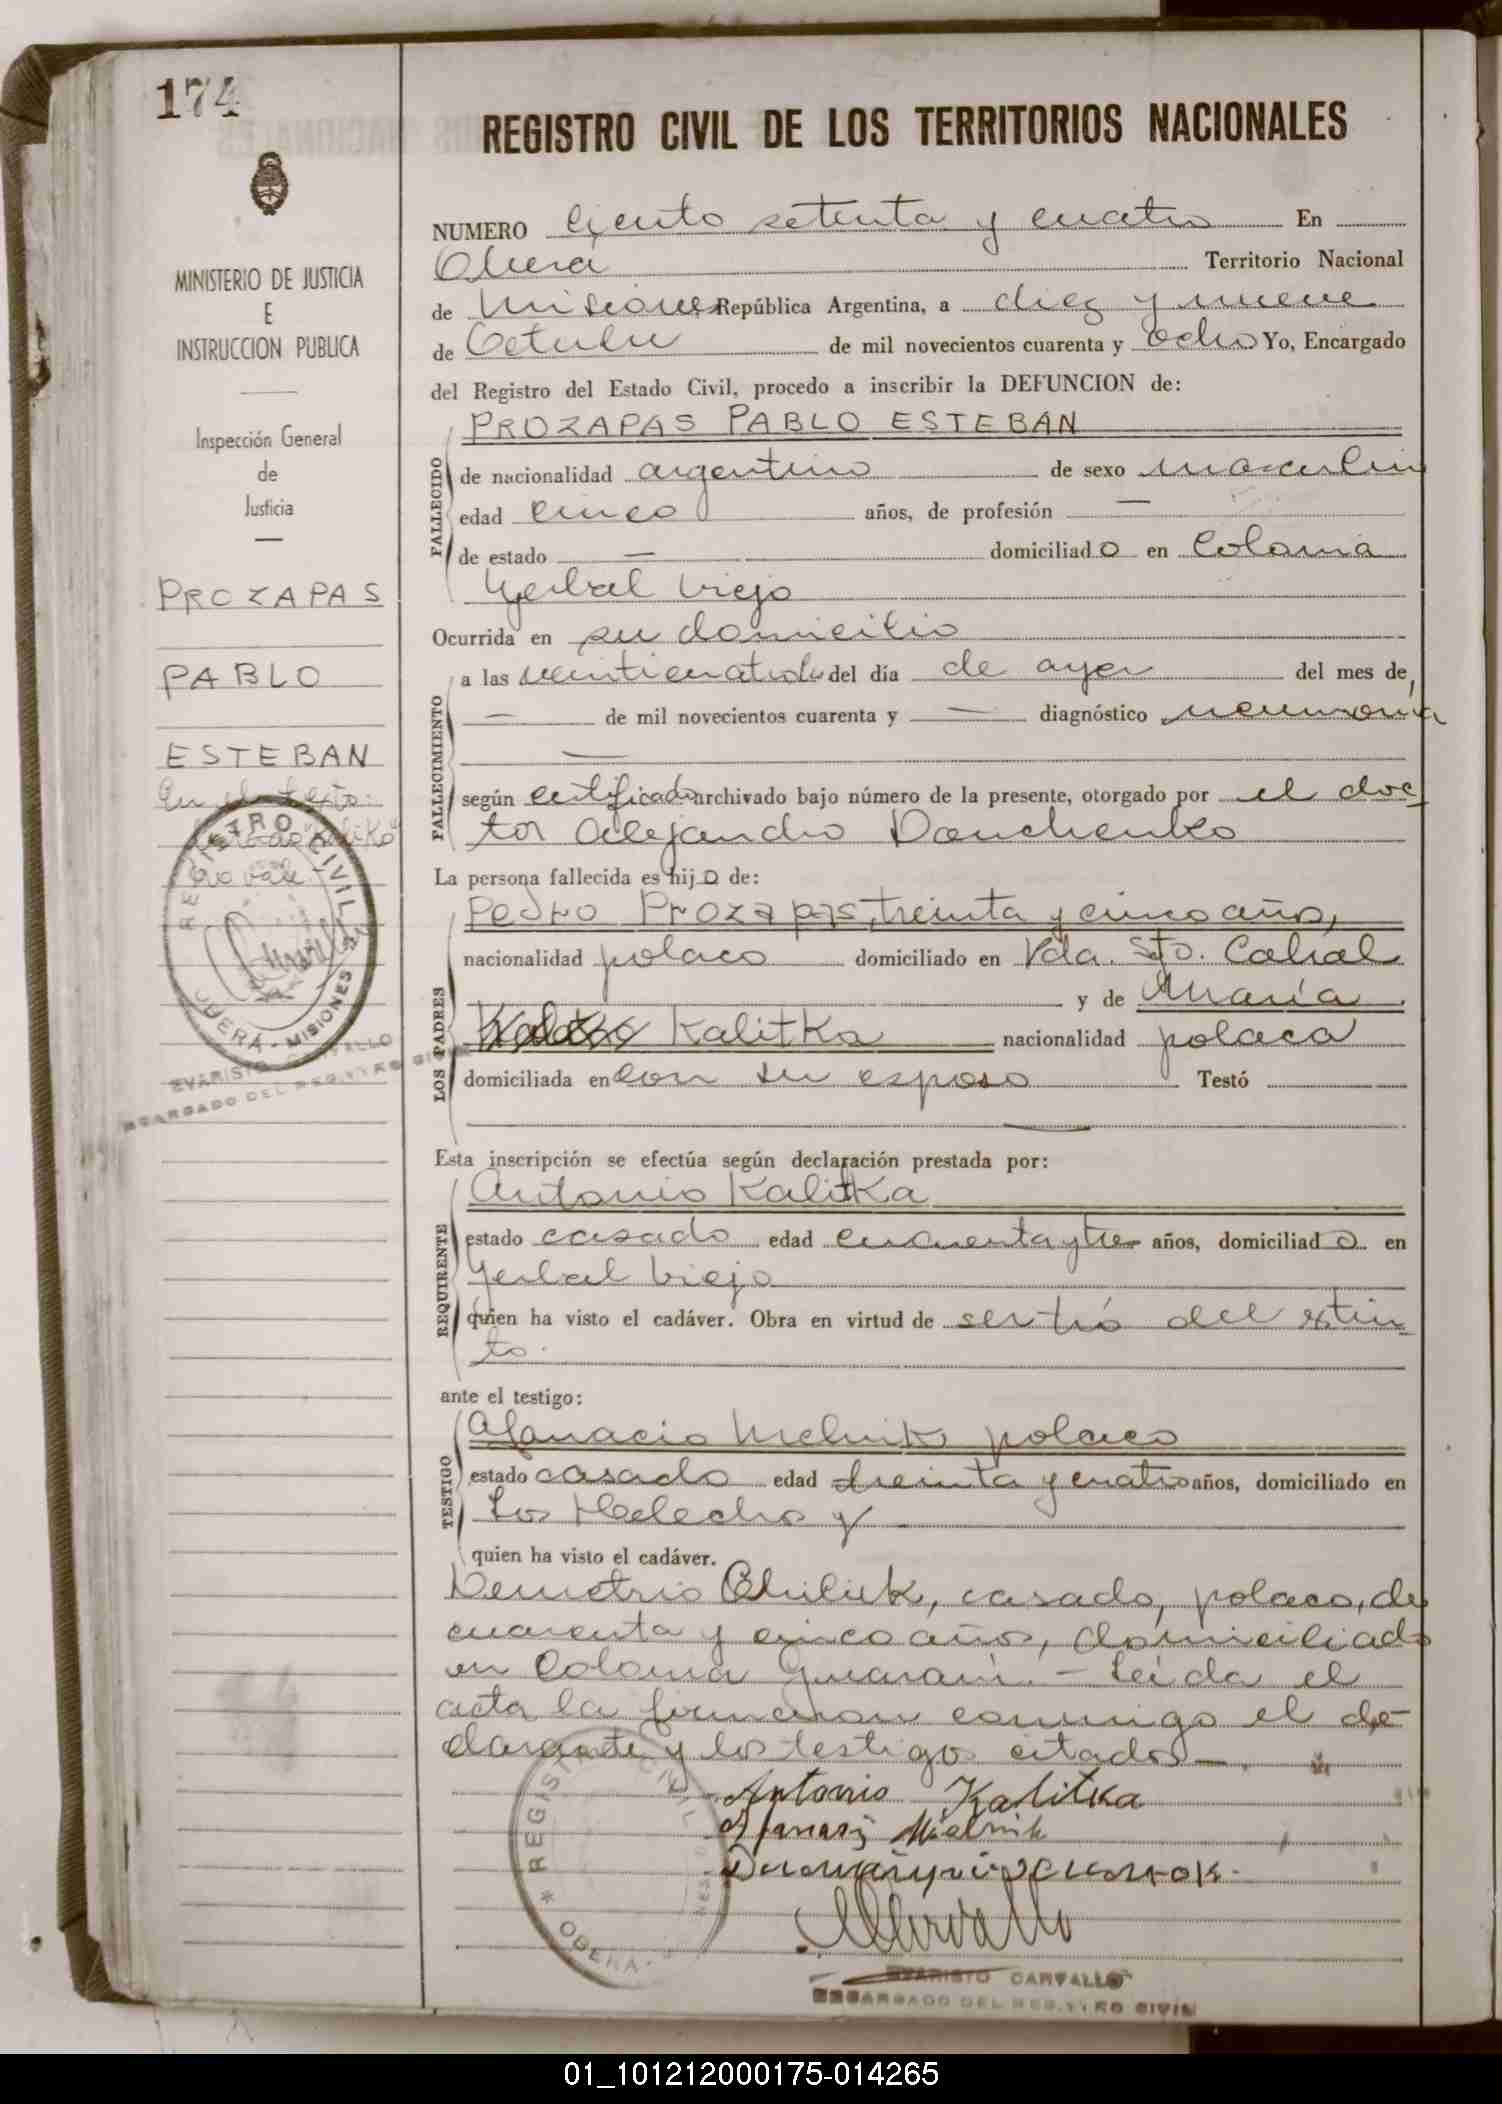 174
REGISTRO CIVIL DE LOS TERRITORIOS NACIONALES
MINISTERIO DE JUSTICIA
E
INSTRUCCION PUBLICA
Inspección General
de
Justicia
PROZAPAS
PABLO
ESTEBAN
En el texto:
REGISTRO CIVIL
OBERÁ - MISIONES
EVARISTO CARVALLO
ENCARGADO DEL REGISTRO CIVIL
NUMERO Ciento setenta y cuatro En
Oberá Territorio Nacional
de Misiones República Argentina, a diez y nueve
de Octubre de mil novecientos cuarenta y ocho Yo, Encargado
del Registro del Estado Civil, procedo a inscribir la DEFUNCION de:
PROZAPAS PABLO ESTEBAN
FALLECIDO
de nacionalidad argentino de sexo masculin
edad cinco años, de profesión —
de estado — domiciliado en Colonia
Yerbal Viejo
Ocurrida en su domicilio
FALLECIMIENTO
a las veinticuatro del día de ayer del mes de
— de mil novecientos cuarenta y — diagnóstico neumonia
—
según certificado archivado bajo número de la presente, otorgado por el doc
tor Alejandro Danchenko
La persona fallecida es hijo de:
LOS PADRES
Pedro Prozapas, treinta y cinco años,
nacionalidad polaco domiciliado en Vda. Sto. Cabral
y de María
Kalitka nacionalidad polaca
domiciliada en con su esposo Testó
—
Esta inscripción se efectúa según declaración prestada por:
REQUIRENTE
Antonio Kalitka
estado casado edad cuarenta y tres años, domiciliado en
Yerbal Viejo
quien ha visto el cadáver. Obra en virtud de ser tío del extin
to.
ante el testigo:
TESTIGO
Afanacio Melnik polaco
estado casado edad treinta y cuatro años, domiciliado en
Los Helechos y
quien ha visto el cadáver.
Demetrio Chiliuk, casado, polaco, de
cuarenta y cinco años, domiciliado
en Colonia Guaraní. - Leída el
acta la firmaron conmigo el de-
clarante y los testigos citados —.
Antonio Kalitka
Afanasij Mielnik
REGISTRO CIVIL
OBERÁ -
EVARISTO CARVALLO
ENCARGADO DEL REGISTRO CIVIL
01_101212000175-014265